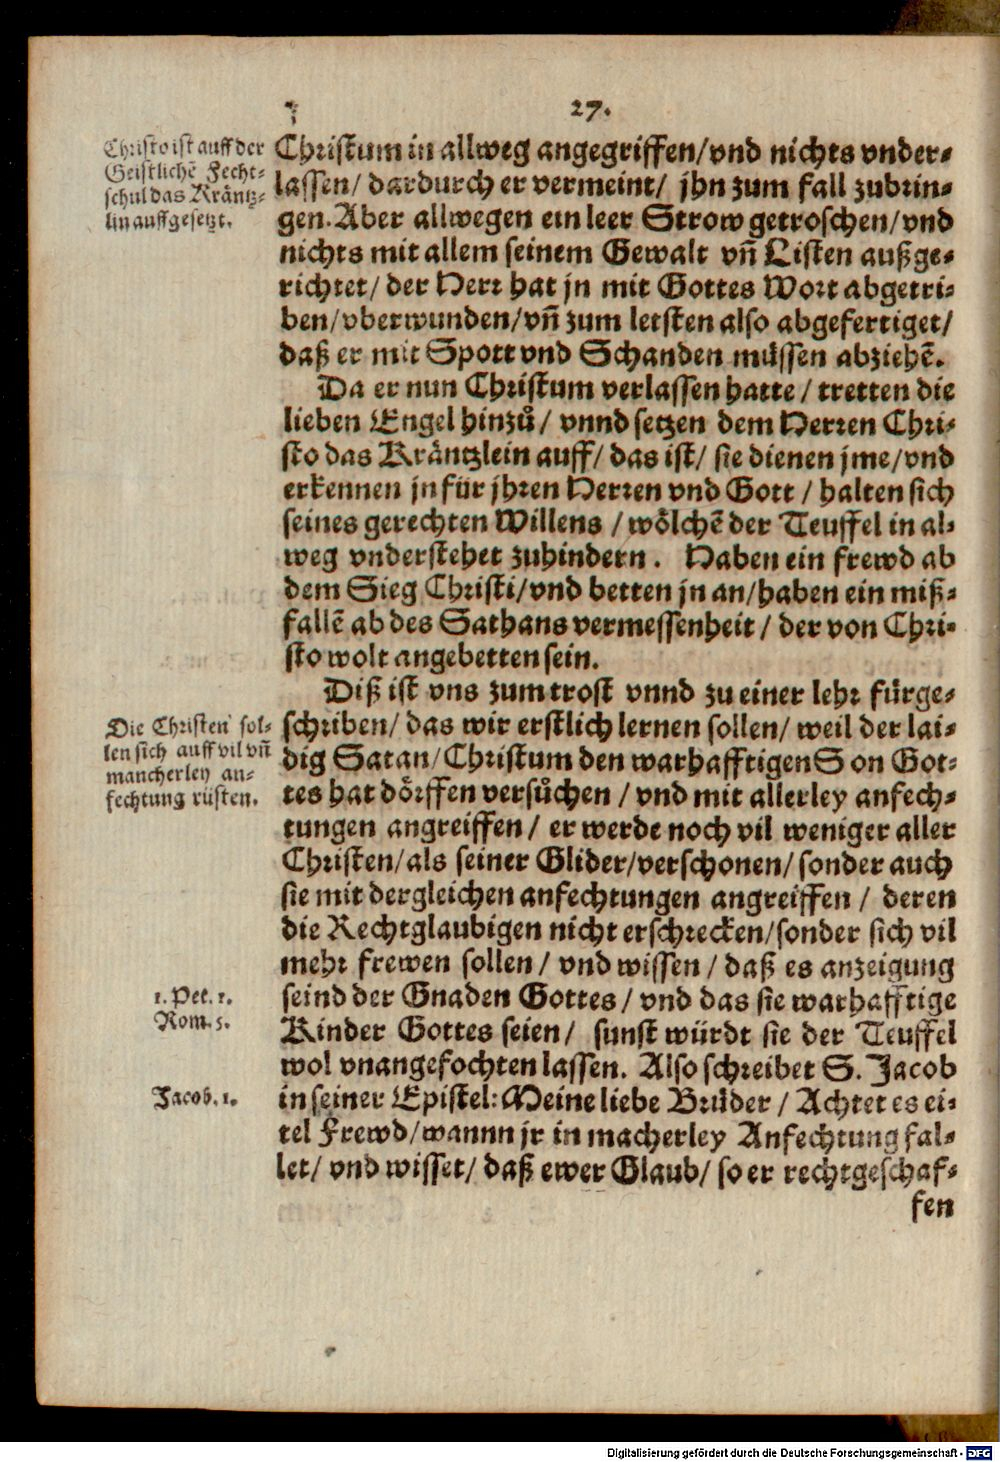 27.
Christo ist auff der
Geistlichẽ Fecht-
schul das Kräntz-
lin auffgesetzt.
Christum in allweg angegriffen/vnd nichts vnder-
lassen/ dardurch er vermeint/ jhn zum fall zubrin-
gen. Aber allwegen ein leer Strow getroschen/vnd
nichts mit allem seinem Gewalt vñ Listen außge-
richtet/ der Herr hat jn mit Gottes Wort abgetri-
ben/vberwunden/vñ zum letsten also abgefertiget/
daß er mit Spott vnd Schanden müssen abziehẽ.
Da er nun Christum verlassen hatte / tretten die
lieben Engel hinzů / vnnd setzen dem Herren Chri-
sto das Kräntzlein auff/ das ist/ sie dienen jme/vnd
erkennen jn für jhren Herren vnd Gott / halten sich
seines gerechten Willens / wölchẽ der Teuffel in al-
weg vnderstehet zuhindern. Haben ein frewd ab
dem Sieg Christi/vnd betten jn an/haben ein miß-
fallẽ ab des Sathans vermessenheit / der von Chri-
sto wolt angebetten sein.
Diß ist vns zum trost vnnd zu einer lehr fürge-
Die Christen sol-
len sich auff vil vñ
mancherley an-
fechtung rüsten.
schriben/ das wir erstlich lernen sollen/ weil der lai-
dig Satan/Christum den warhafftigen Son Got-
tes hat dörffen versůchen / vnd mit allerley anfech-
tungen angreiffen/ er werde noch vil weniger aller
Christen/als seiner Glider/verschonen/ sonder auch
sie mit dergleichen anfechtungen angreiffen / deren
die Rechtglaubigen nicht erschrecken/sonder sich vil
mehr frewen sollen/ vnd wissen/ daß es anzeigung
1. Pet. 1.
Rom. 5.
seind der Gnaden Gottes/ vnd das sie warhafftige
Kinder Gottes seien/ sunst würdt sie der Teuffel
wol vnangefochten lassen. Also schreibet S. Jacob
Jacob. 1.
in seiner Epistel: Meine liebe Brüder / Achtet es ei-
tel Frewd/wannn jr in macherley Anfechtung fal-
let/ vnd wisset/ daß ewer Glaub/ so er rechtgeschaf-
fen
Digitalisierung gefördert durch die Deutsche Forschungsgemeinschaft - DFG